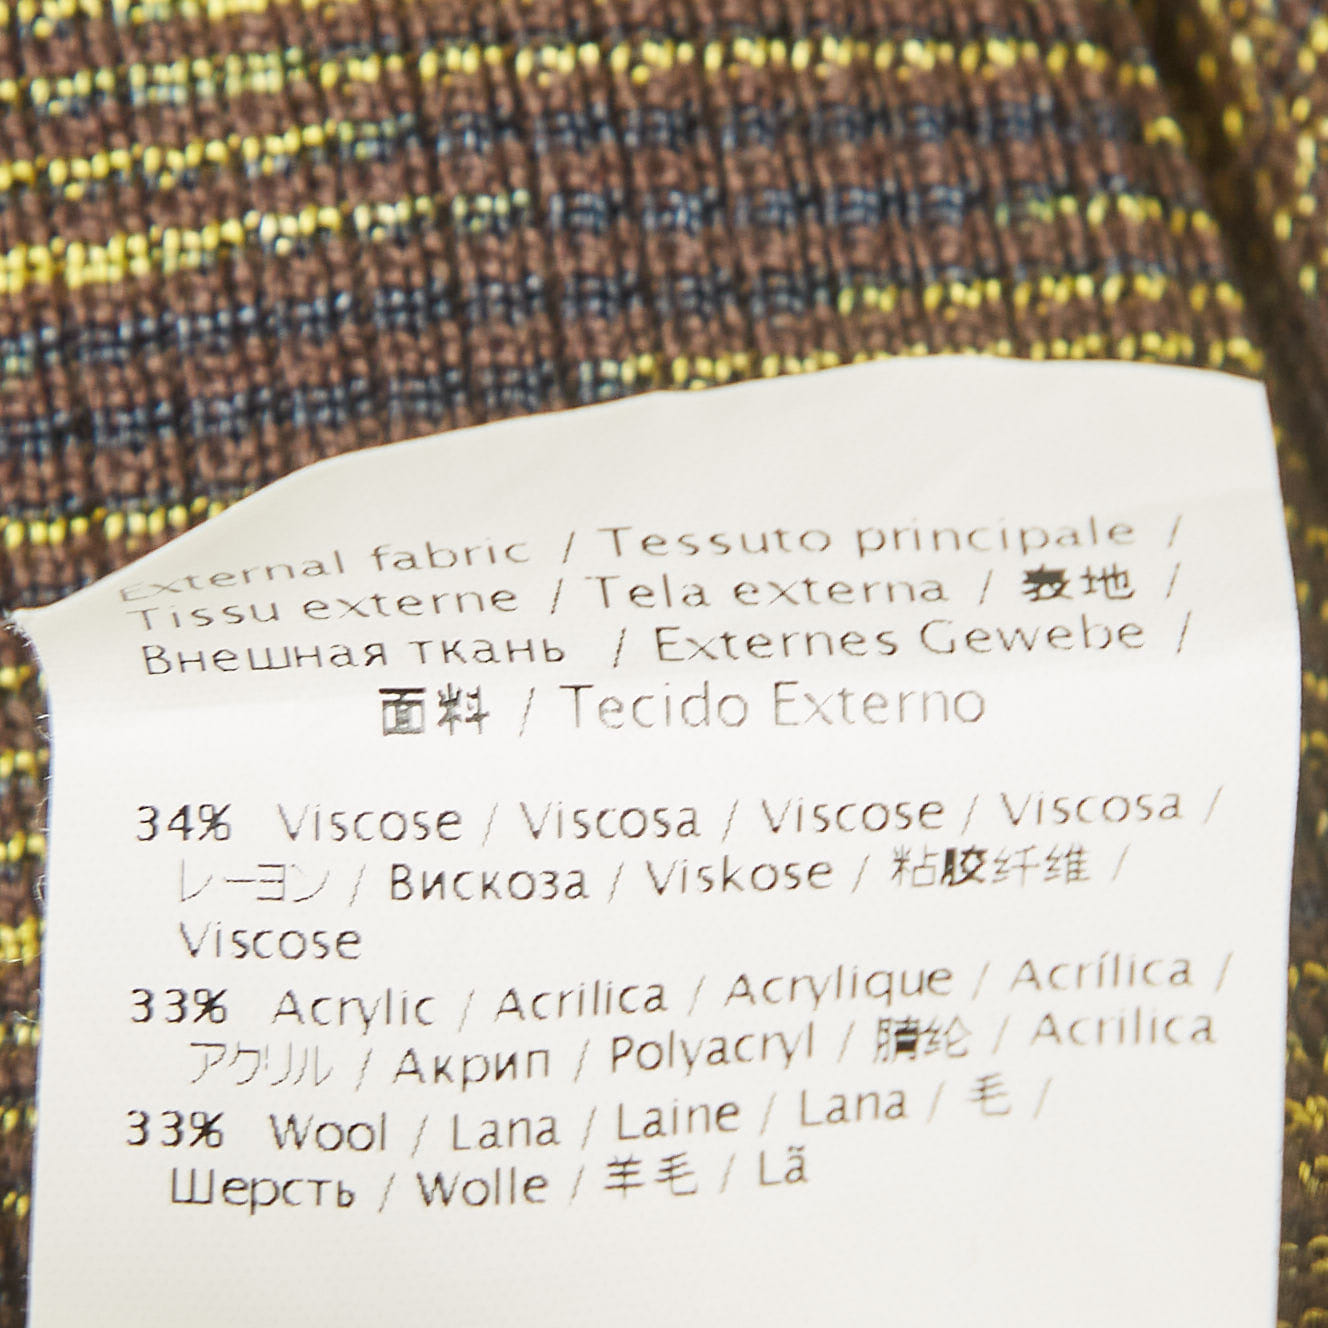 External fabric / Tessuto principale /
Tissu externe / Tela externa / 表地 /
Внешная ткань / Externes Gewebe /
面料 / Tecido Externo
34% Viscose / Viscosa / Viscose / Viscosa /
レーヨン / Вискоза / Viskose / 粘胶纤维 /
Viscose
33% Acrylic / Acrilica / Acrylique / Acrílica /
アクリル / Акрил / Polyacryl / 腈纶 / Acrilica
33% Wool / Lana / Laine / Lana / 毛 /
Шерсть / Wolle / 羊毛 / Lã